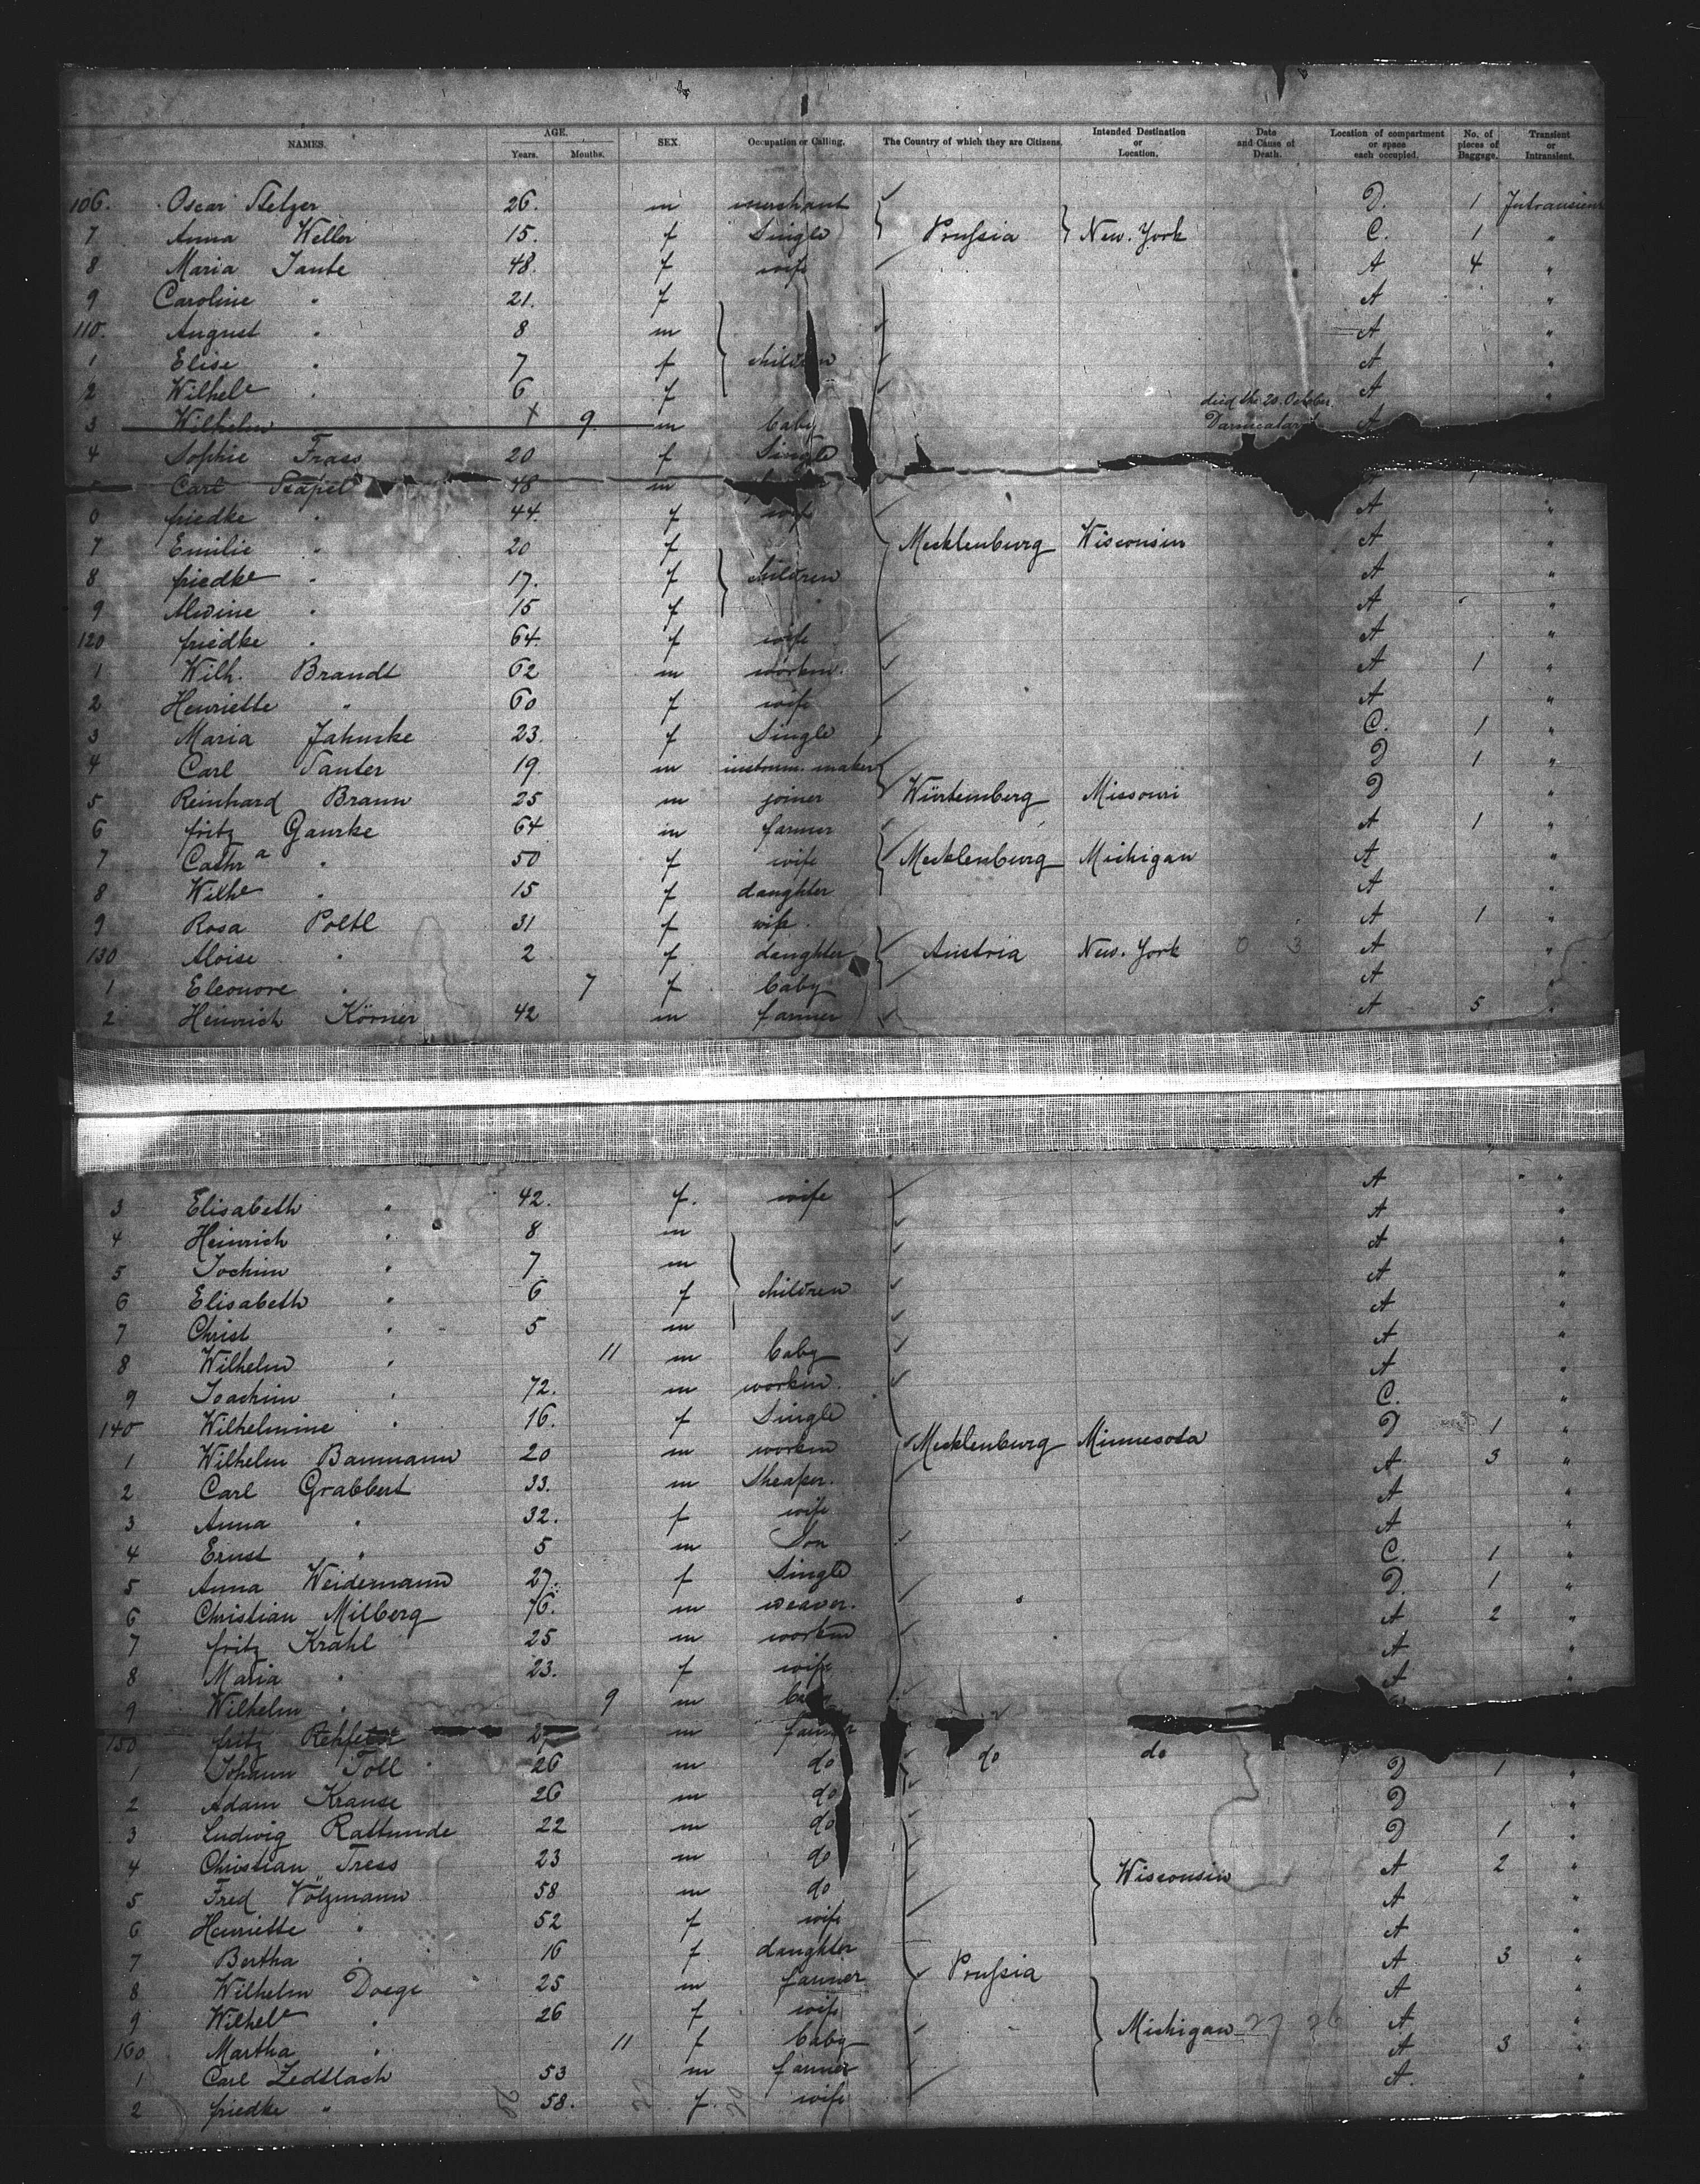 NAMES. AGE. Years. Months. SEX. Occupation or Calling. The Country of which they are Citizens. Intended Destination or Location. Date and Cause of Death. Location of compartment or space each occupied. No. of pieces of Baggage. Transient or Intransient.
106. Oscar Stelzer 26. m merchant D. 1 Intransient
7 Anna Weller 15. f Single Prussia New. York C. 1 "
8 Maria Tante 48. f wife A 4 "
9 Caroline " 21. f A "
110. August " 8 m A "
1 Elise " 7 f children A "
2 Wilhele " 6 f A "
3 Wilhelm 9. m baby died the 20. October A
4 Sophie Frass 20 f Single
Carl Stapel 48 m 1
friedke " 44. f wife A "
7 Emilie " 20 f Mecklenburg Wisconsin A "
8 friedke " 17. f children A "
9 Alwine " 15 f A "
120 friedke " 64. f wife A "
1 Wilh. Brandt 62 m workm. A 1 "
2 Henriette " 60 f wife A "
3 Maria Jahncke 23. f Single C. 1 "
4 Carl Santer 19. m instrum. maker D 1 "
5 Reinhard Braun 25 m joiner Würtemberg Missouri D "
6 fritz Gaurke 64 m farmer A 1 "
7 Cathra " 50 f wife Mecklenburg Michigan A "
8 Wilhe " 15 f daughter A "
9 Rosa Poltl 31 f wife. A 1 "
130 Aloise " 2 f daughter Austria New. York 0 3 A "
1 Eleonore " 7 f baby A "
2 Heinrich Körner 42 m farmer A 5 "
3 Elisabeth " 42. f. wife A "
4 Heinrich " 8 m A "
5 Jochim " 7 m A "
6 Elisabeth " 6 f children A "
7 Christ " 5 m A "
8 Wilhelm " 11 m baby A "
9 Joachim " 72. m workm. A "
140 Wilhelmine " 16. f Single C. "
1 Wilhelm Baumann 20 m workm Mecklenburg Minnesota D 1 "
2 Carl Grabbert 33. m Sheaper. A 3 "
3 Anna " 32. f wife A "
4 Ernst " 5 m Son A "
5 Anna Weidemann 27. f Single C. 1 "
6 Christian Milberg 76. m weaver. D. 1 "
7 fritz Krahl 25 m workm A 2 "
8 Maria " 23. f wife A "
9 Wilhelm " 9 m A "
150 fritz m farmer
1 Johann Toll 26 m do do do D 1 "
2 Adam Krause 26 m do D "
3 Ludwig Rattunde 22 m do D 1 "
4 Christian Tress 23 m do Wisconsin A 2 "
5 Fred Völzmann 58 m do A "
6 Henriette " 52 f wife A "
7 Bertha " 16 f daughter A 3 "
8 Wilhelm Doege 25 m farmer Prussia A "
9 Wilhele " 26 f wife A "
160 Martha " 11 f baby Michigan 27 26 A 3 "
1 Carl Zedtlach 53 m farmer A. "
2 friedke " 58. f wife